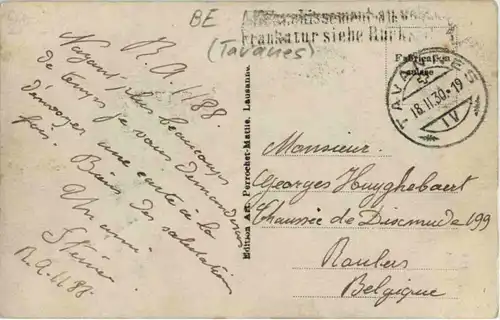 BE
(Tavanes)
Affranchissement au verso
Frankatur siehe Rücks
Fabrication
suisse
TAVANNES
18.II.30.-19
IV
R.A. 1188.
N'ayant plus beaucoup
de temps je vous demanderai
d'envoyer une carte à la
fois. Bien des salutations
Un ami
R.A. 1188.
Edition Art. Perrochet-Matile, Lausanne.
Monsieur.
Georges Huyghebaert
Chaussée de Dixmude 199
Roulers
Belgique